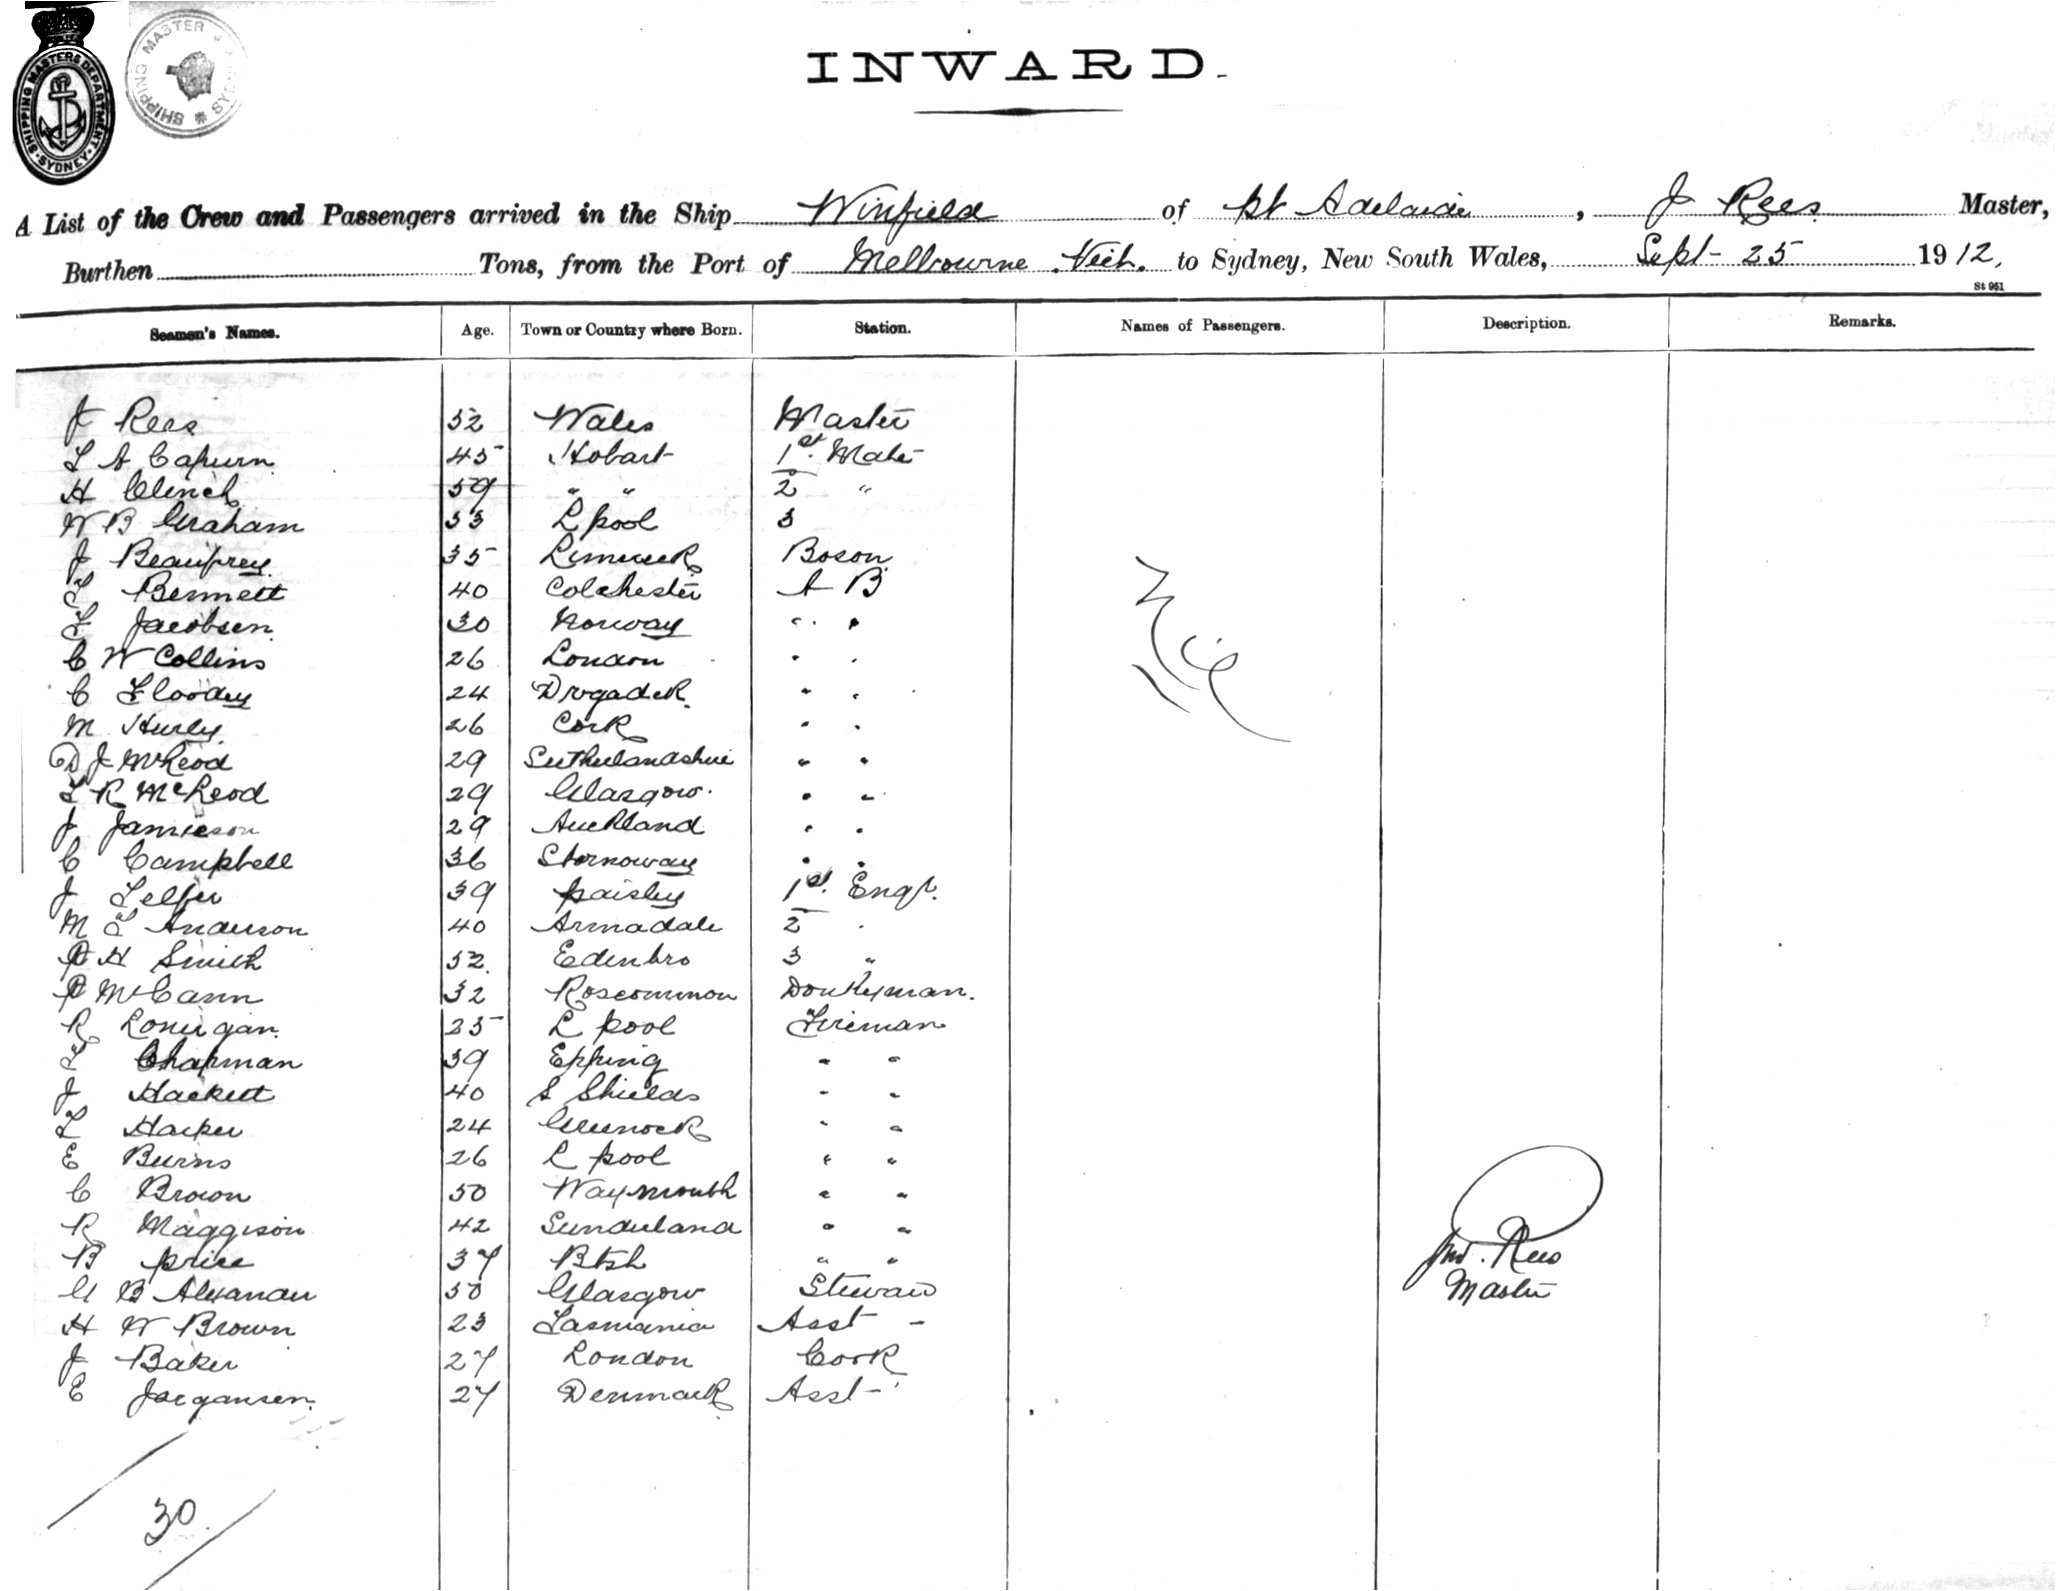 SHIPPING MASTERS DEPARTMENT · SYDNEY ·
SHIPPING MASTER
INWARD.
A List of the Crew and Passengers arrived in the Ship Winfield of pt Adelaide, J Rees Master,
Burthen Tons, from the Port of Melbourne Vict. to Sydney, New South Wales, Sept- 25 1912,
St 951
Seamen's Names. Age. Town or Country where Born. Station. Names of Passengers. Description. Remarks.
J Rees 52 Wales Master
L A Capurn 45 Hobart 1st. Mate
H Clinch 59 " " 2 "
W B Graham 33 L pool 3
J Beauprey 35 Limerick Boson
T Bennett 40 Colchester A B
F Jacobsen 30 Norway " "
C W Collins 26 London " "
C Floodey 24 Drogadek " "
M Hurley 26 Cork " "
D J McLeod 29 Sutherlandshire " "
T R McLeod 29 Glasgow " "
J Jamieson 29 Auckland " "
C Campbell 36 Stornoway " "
J Telfer 39 paisley 1st. Engr.
M T Anderson 40 Armadale 2 "
P H Smith 52 Edenbro 3 "
P McCann 32 Roscommon Donkyman.
R Lonergan 25 L pool Fireman
T Chapman 39 Epping " "
J Hackett 40 S Shields " "
T Harper 24 Greenock " "
E Burns 26 L pool " "
C Brown 50 Waymouth " "
R Maggison 42 Sunderland " "
B price 37 Btsh " "
G B Alexander 50 Glasgow Steward
H W Brown 23 Tasmania Asst -
J Baker 27 London Cook
E Jorgansen 27 Denmark Asst -
Nil
Jno. Rees
Master
30